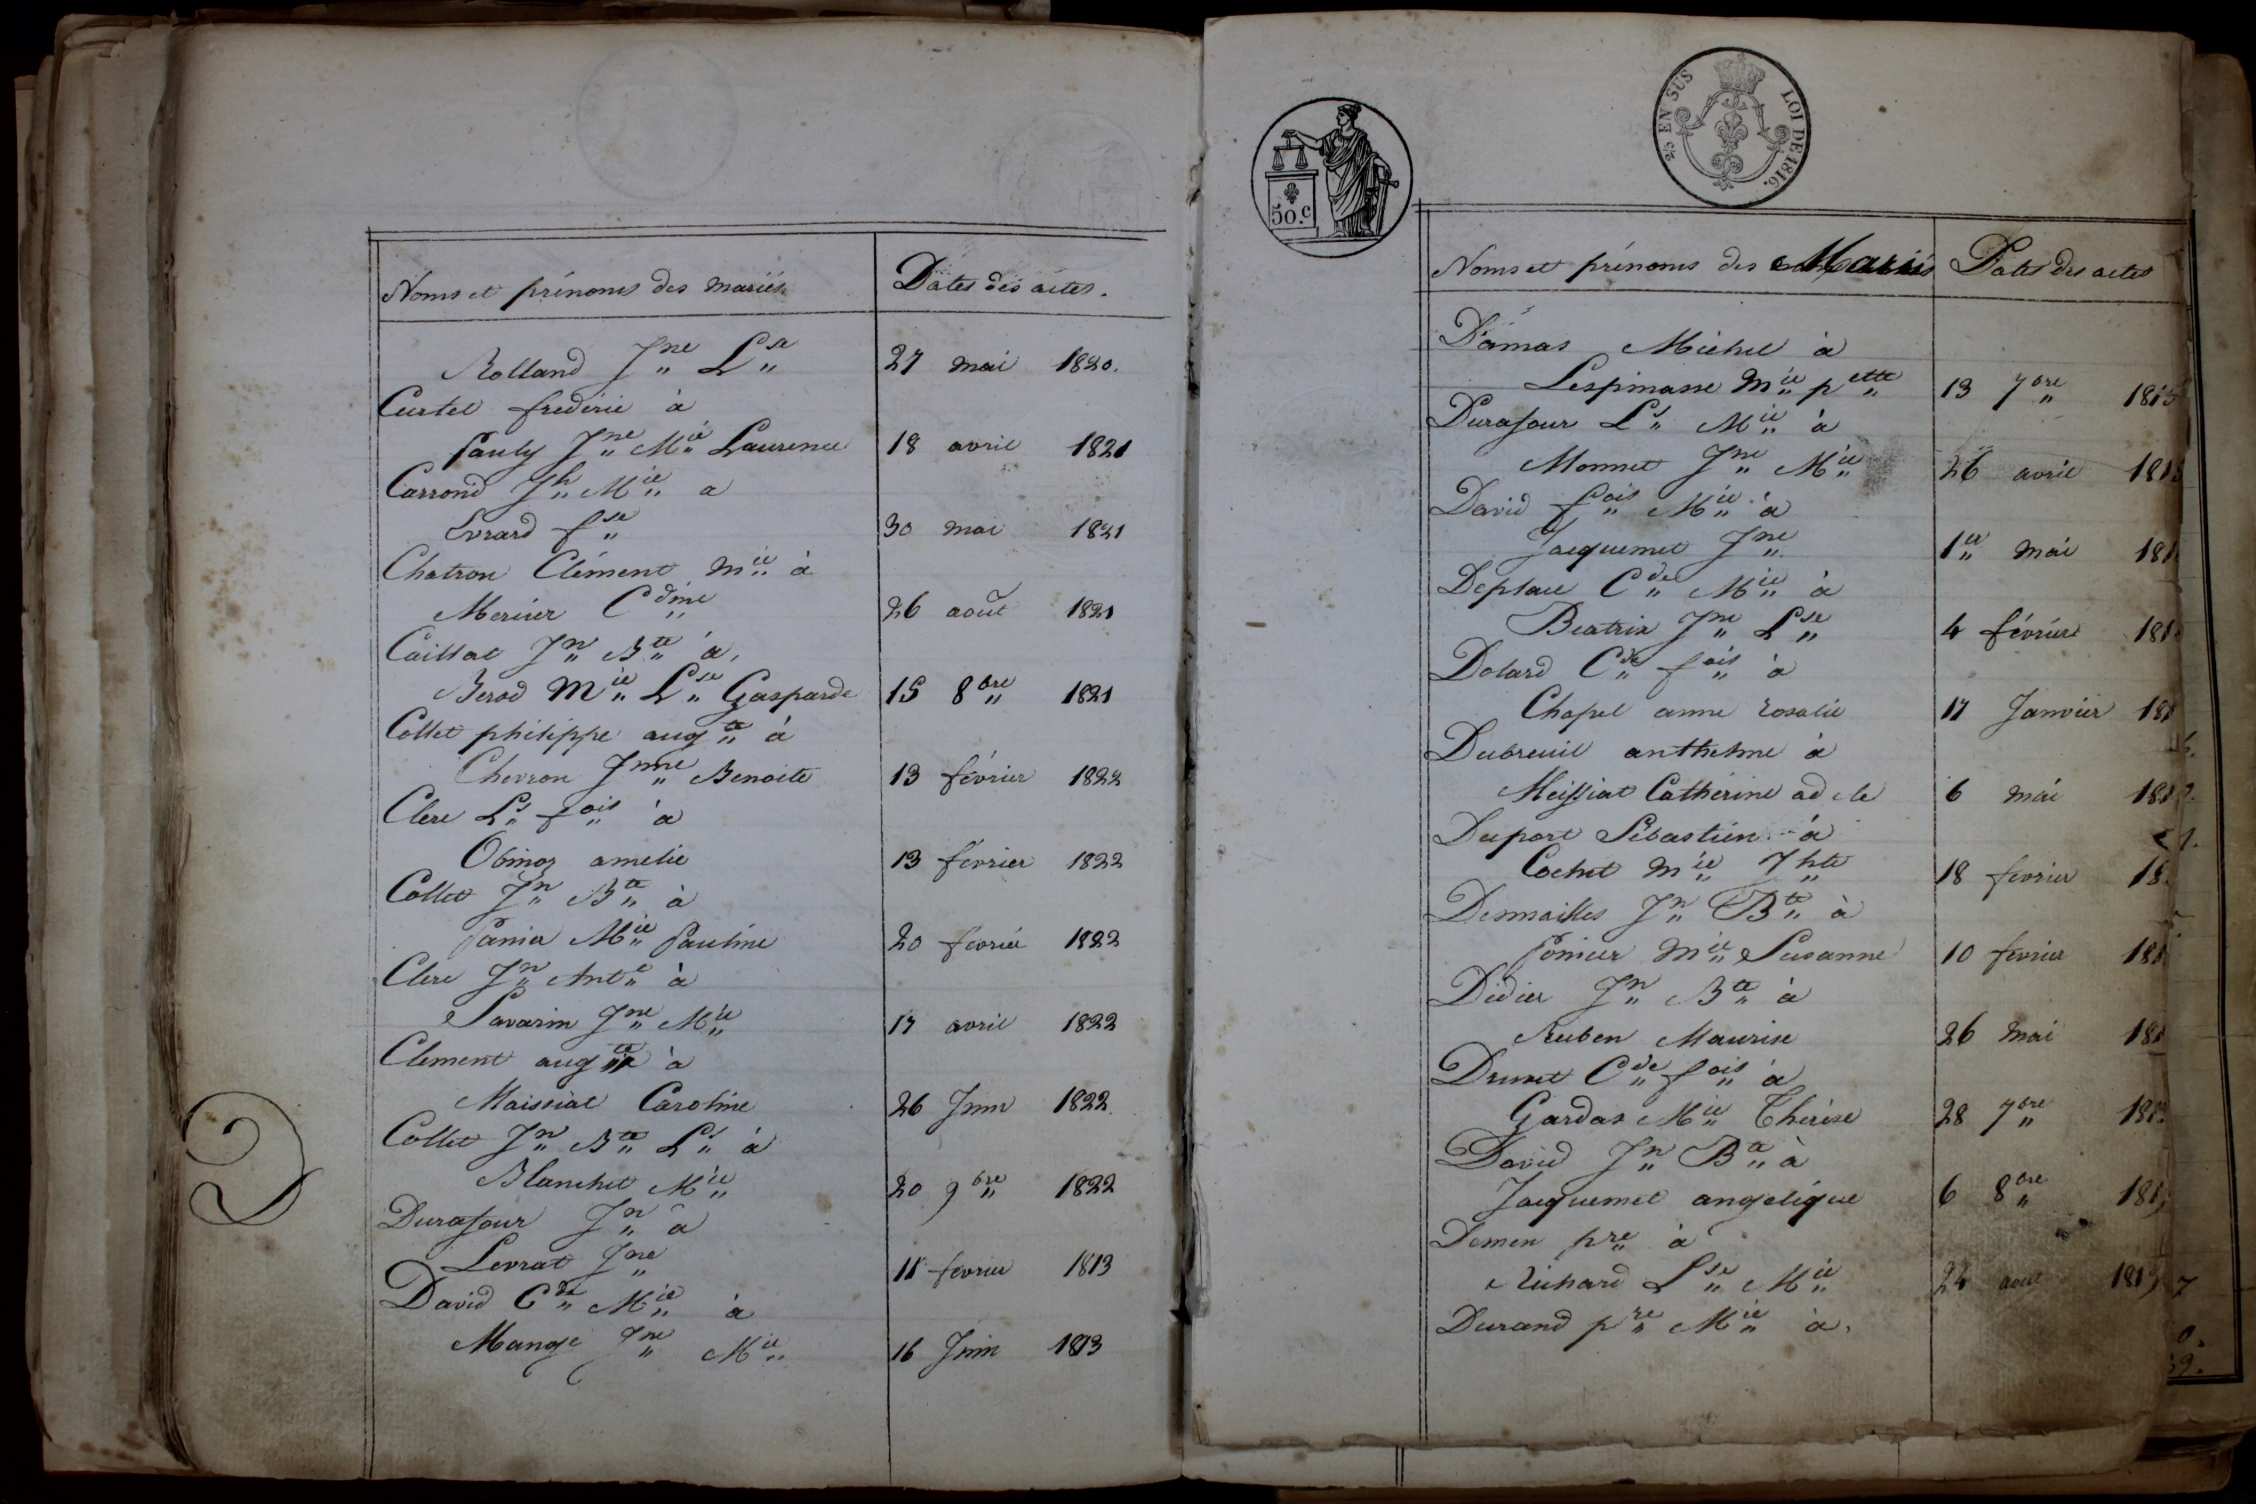 Noms et prénoms des mariés
Dates des actes.
Rolland Jne Lse 27 mai 1820.
Curtel frederic à
Pauly Jne Mie Laurence 18 avril 1821
Carrond Jh Mie a
Evrard fse 30 mai 1821
Chatron Clément Mie à
Mercier Cdine 26 août 1821
Caillat Jn Bte à,
Berod Mie Lse Gasparde 15 8bre 1821
Collet philippe augte à
Chevron Jnne Benoite 13 février 1822
Clerc Ls fois à
Obinoz amelie 13 février 1822
Collet Jn Bte à
Panier Mie Pauline 20 février 1822
Clerc Jn Ante à
Savarin Jne Mie 17 avril 1822
Clement augte à
Maissiat Caroline 26 Juin 1822
Collet Jn Bte Ls à
Blanchet Mie 20 9bre 1822
D
Durafour Jn à
Levrat Jne 11 février 1813
David Cde Mie à
Mange Jne Mie 16 Juin 1813
50.c
2/5 EN SUS LOI DE 1816.
Noms et prénoms des Mariés
Dates des actes
Damas Michel à
Lespinasse Mie pette 13 7bre 1815
Durafour Ls Mie à
Monnet Jne Mie 26 avril 181
David fois Mie à
Jacquemet Jne 1er mai 181
Deplace Cde Mie à
Beatrix Jne Lse 4 février 181
Dolard Cde fois à
Chapel anne rosalie 17 Janvier 181
Dubreuil anthelme à
Meissiat Catherine adele 6 mai 181
Duport Sébastien à
Cochet Mie Jhte 18 fevrier 18
Desmailles Jn Bte à
Ponier Mie Susanne 10 fevrier 181
Didier Jn Bte à
Reuben Maurise 26 mai 181
Drunet Cde fois à
Gardas Mie Thérèse 28 7bre 181
David Jn Bte à
Jacquemet angelique 6 8bre 181
Domen pre à
Richard Lse Mie 24 aout 181
Durand pre Mie à,